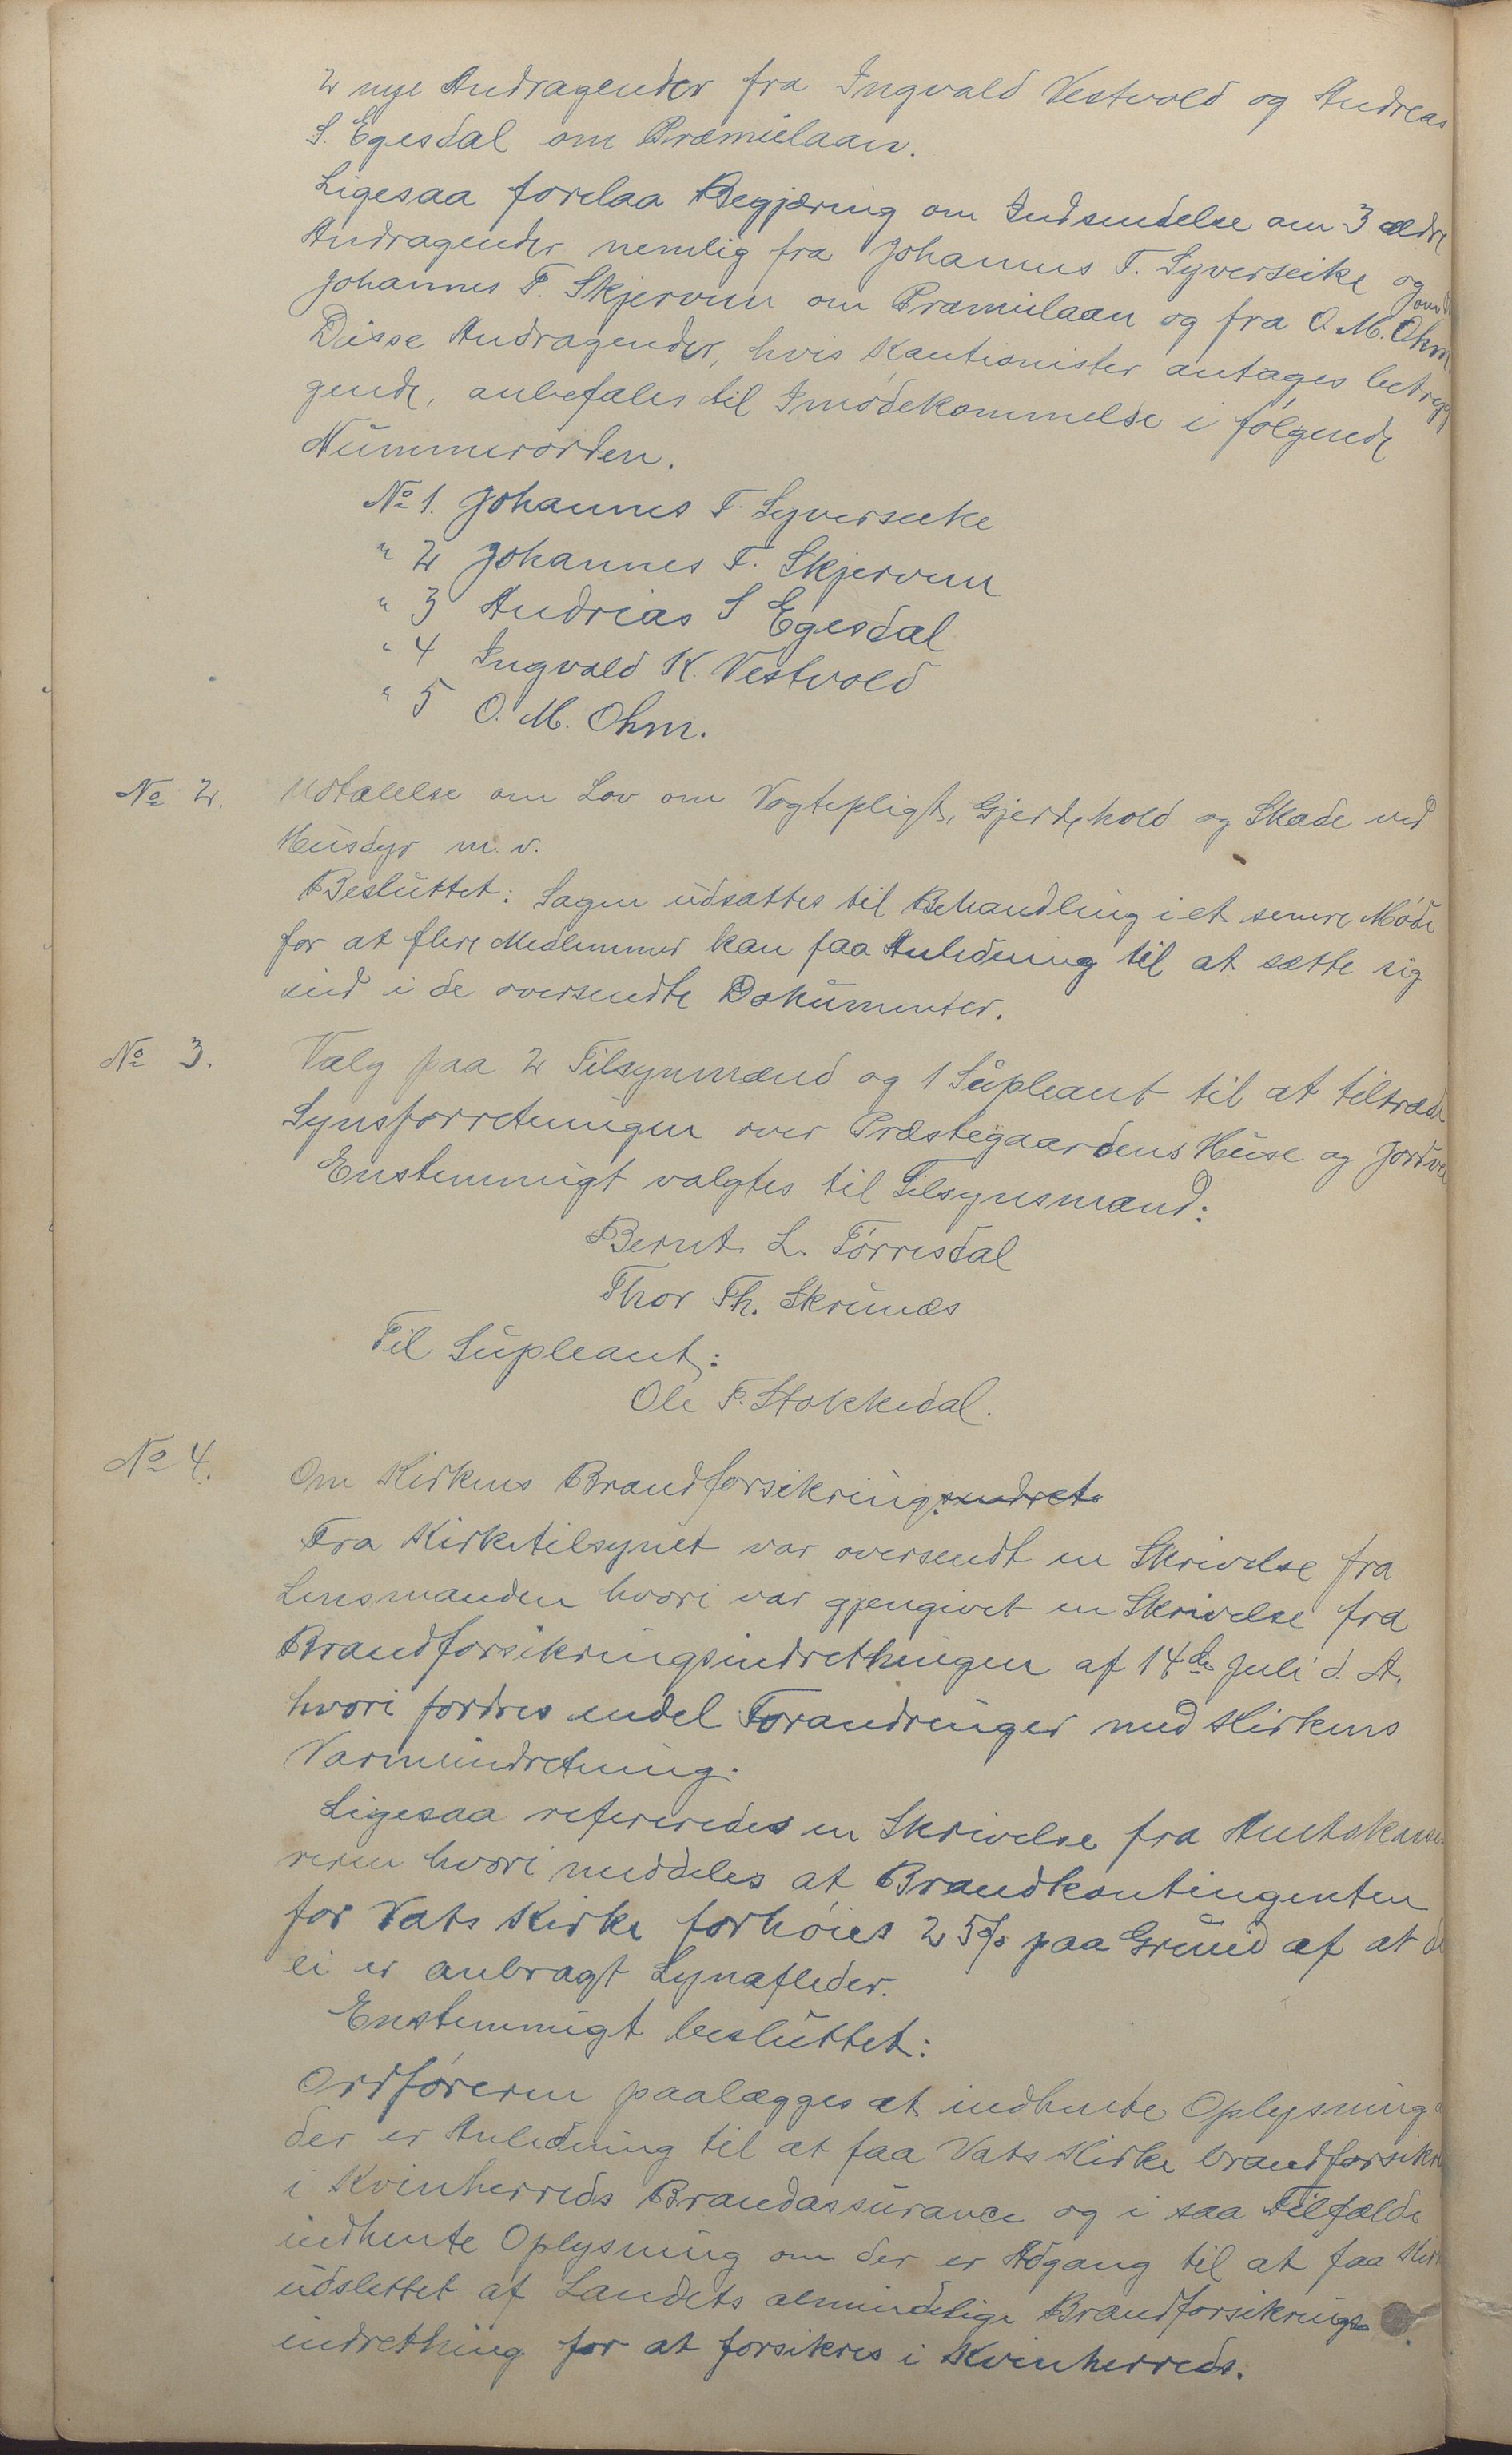 2 nye Andragender fra Ingvald Vestvold og Andreas
S. Egesdal om Præmielaan.
Ligesaa forelaa Begjæring om Indsendelse om 3 ældre
Andragender nemlig fra Johannes T. Syverseike og
Johannes T. Skjervum om Præmielaan og fra O. M. Ohm
Disse Andragender, hvis Kautionister antages betryg
gende, anbefales til Imødekommelse i følgende
Nummerorden.
No 1. Johannes T. Syverseike
" 2 Johannes T. Skjervum
" 3 Andreas S Egesdal
" 4 Ingvald K. Vestvold
" 5 O. M. Ohm.
No 2. Udtalelse om Lov om Vogtepligt, Gjerdehold og Skade ved
Husdyr m. v.
Besluttet: Sagen udsattes til Behandling i et senere Møde
for at flere Medlemmer kan faa Anledning til at sætte sig
ind i de oversendte Dokumenter.
No 3. Valg paa 2 Tilsynmænd og 1 Supleant til at tiltræde
Synsforretningen over Præstegaardens Huse og Jordvei
Enstemmigt valgtes til Tilsynsmænd:
Bernt L. Tørresdal
Thor Th. Skrunæs
Til Supleant:
Ole T. Stokkedal.
No 4. Om Kirkens Brandforsikringsindret
Fra Kirketilsynet var oversendt en Skrivelse fra
Lensmanden hvori var gjengivet en Skrivelse fra
Brandforsikringsindrethingen af 14de Juli d. A.
hvori fordres endel Forandringer med Kirkens
Varmeindretning.
Ligesaa refereredes en Skrivelse fra Amtskasse
reren hvori meddeles at Brandkontingenten
for Vats Kirke forhøies 25% paa Grund af at d
ei er anbragt Lynafleder.
Enstemmigt besluttet:
Ordføreren paalægges at indhente Oplysning
der er Anledning til at faa Vats Kirke brandforsikr
i Kvinherreds Brandassurance og i saa Tilfælde
indhente Oplysning om der er Adgang til at faa Kir
udslettet af Landets almindelige Brandforsikrings-
indrething for at forsikres i Kvinherreds.